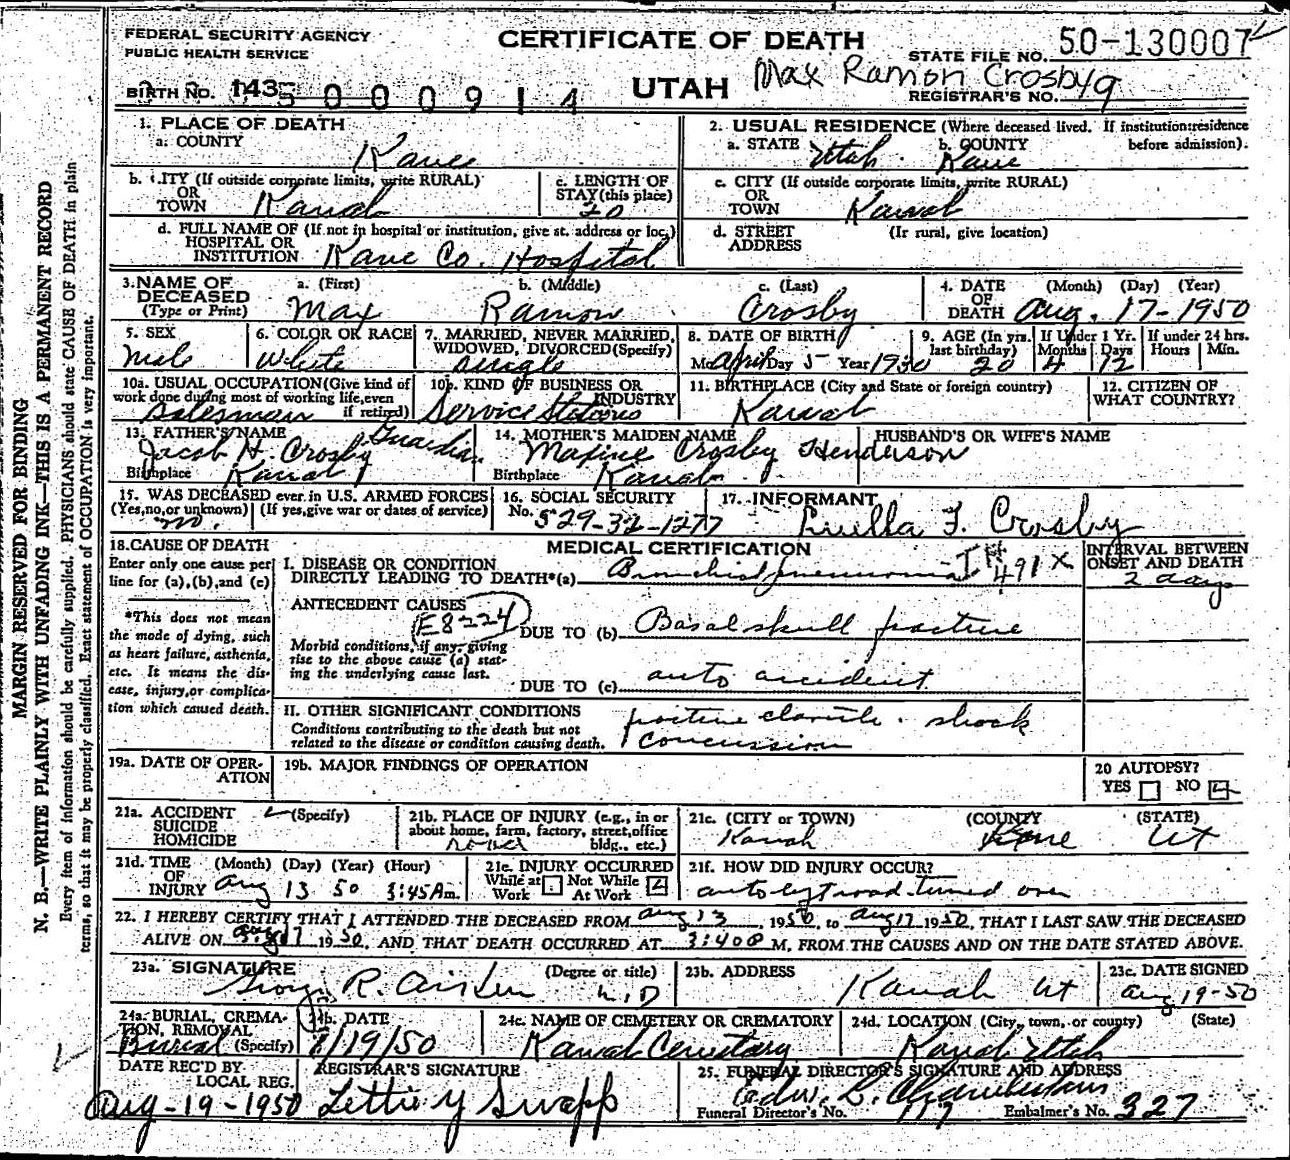 FEDERAL SECURITY AGENCY
PUBLIC HEALTH SERVICE
CERTIFICATE OF DEATH
STATE FILE NO. 50-130007
BIRTH NO. 143 5000914
UTAH
Max Ramon Crosby
REGISTRAR'S NO. 19
MARGIN RESERVED FOR BINDING
N. B.—WRITE PLAINLY WITH UNFADING INK—THIS IS A PERMANENT RECORD
Every item of information should be carefully supplied. PHYSICIANS should state CAUSE OF DEATH in plain
terms, so that it may be properly classified. Exact statement of OCCUPATION is very important.
1. PLACE OF DEATH
a. COUNTY
Kane
2. USUAL RESIDENCE (Where deceased lived. If institution: residence
before admission).
a. STATE Utah b. COUNTY Kane
b. CITY (If outside corporate limits, write RURAL)
OR
TOWN Kanab
c. LENGTH OF
STAY (this place)
20
c. CITY (If outside corporate limits, write RURAL)
OR
TOWN Kanab
d. FULL NAME OF (If not in hospital or institution, give st. address or loc.)
HOSPITAL OR
INSTITUTION Kane Co. Hospital
d. STREET (If rural, give location)
ADDRESS
3. NAME OF
DECEASED
(Type or Print)
a. (First) b. (Middle) c. (Last)
Max Ramon Crosby
4. DATE (Month) (Day) (Year)
OF
DEATH Aug. 17-1950
5. SEX
Male
6. COLOR OR RACE
White
7. MARRIED, NEVER MARRIED,
WIDOWED, DIVORCED (Specify)
Single
8. DATE OF BIRTH
Mo April Day 5 Year 1930
9. AGE (In yrs. last birthday) 20
If Under 1 Yr. Months 4 Days 12
If under 24 hrs. Hours Min.
10a. USUAL OCCUPATION (Give kind of
work done during most of working life, even
if retired)
Salesman
10b. KIND OF BUSINESS OR
INDUSTRY
Service Stations
11. BIRTHPLACE (City and State or foreign country)
Kanab
12. CITIZEN OF
WHAT COUNTRY?
13. FATHER'S NAME
Jacob H. Crosby Guardian
Birthplace Kanab
14. MOTHER'S MAIDEN NAME
Maxine Crosby Henderson
Birthplace Kanab
HUSBAND'S OR WIFE'S NAME
15. WAS DECEASED ever in U.S. ARMED FORCES
(Yes, no, or unknown) (If yes, give war or dates of service)
no.
16. SOCIAL SECURITY
No. 529-32-1277
17. INFORMANT
Luella F. Crosby
18. CAUSE OF DEATH
Enter only one cause per
line for (a), (b), and (c)
*This does not mean
the mode of dying, such
as heart failure, asthenia,
etc. It means the dis-
ease, injury, or complica-
tion which caused death.
MEDICAL CERTIFICATION
I. DISEASE OR CONDITION
DIRECTLY LEADING TO DEATH*(a) Bronchial pneumonia 491X
INTERVAL BETWEEN
ONSET AND DEATH
2 days
ANTECEDENT CAUSES
E8224
DUE TO (b) Basal skull fracture
Morbid conditions, if any, giving
rise to the above cause (a) stat-
ing the underlying cause last.
DUE TO (c) auto accident
II. OTHER SIGNIFICANT CONDITIONS
Conditions contributing to the death but not
related to the disease or condition causing death.
fracture clavicle. shock
concussion
19a. DATE OF OPER-
ATION
19b. MAJOR FINDINGS OF OPERATION
20 AUTOPSY?
YES NO
21a. ACCIDENT (Specify)
SUICIDE
HOMICIDE
21b. PLACE OF INJURY (e.g., in or
about home, farm, factory, street, office
bldg., etc.)
21c. (CITY or TOWN) (COUNTY (STATE)
Kanab Kane Ut
21d. TIME (Month) (Day) (Year) (Hour)
OF
INJURY Aug 13 50 3:45 Am.
21e. INJURY OCCURRED
While at Not While
Work At Work
21f. HOW DID INJURY OCCUR?
auto turned over
22. I HEREBY CERTIFY THAT I ATTENDED THE DECEASED FROM Aug 13, 1950, to Aug 17 1950, THAT I LAST SAW THE DECEASED
ALIVE ON Aug 17 1950, AND THAT DEATH OCCURRED AT 3:40 M, FROM THE CAUSES AND ON THE DATE STATED ABOVE.
23a. SIGNATURE (Degree or title)
George R. Aiken M.D
23b. ADDRESS
Kanab Ut
23c. DATE SIGNED
Aug 19-50
24a. BURIAL, CREMA-
TION, REMOVAL
Burial (Specify)
24b. DATE
8/19/50
24c. NAME OF CEMETERY OR CREMATORY
Kanab Cemetary
24d. LOCATION (City, town, or county) (State)
Kanab Utah
DATE REC'D BY
LOCAL REG.
Aug-19-1950
REGISTRAR'S SIGNATURE
Lettie Y Swapp
25. FUNERAL DIRECTOR'S SIGNATURE AND ADDRESS
Edw. L. Chamberlain
Funeral Director's No. 119 Embalmer's No. 327